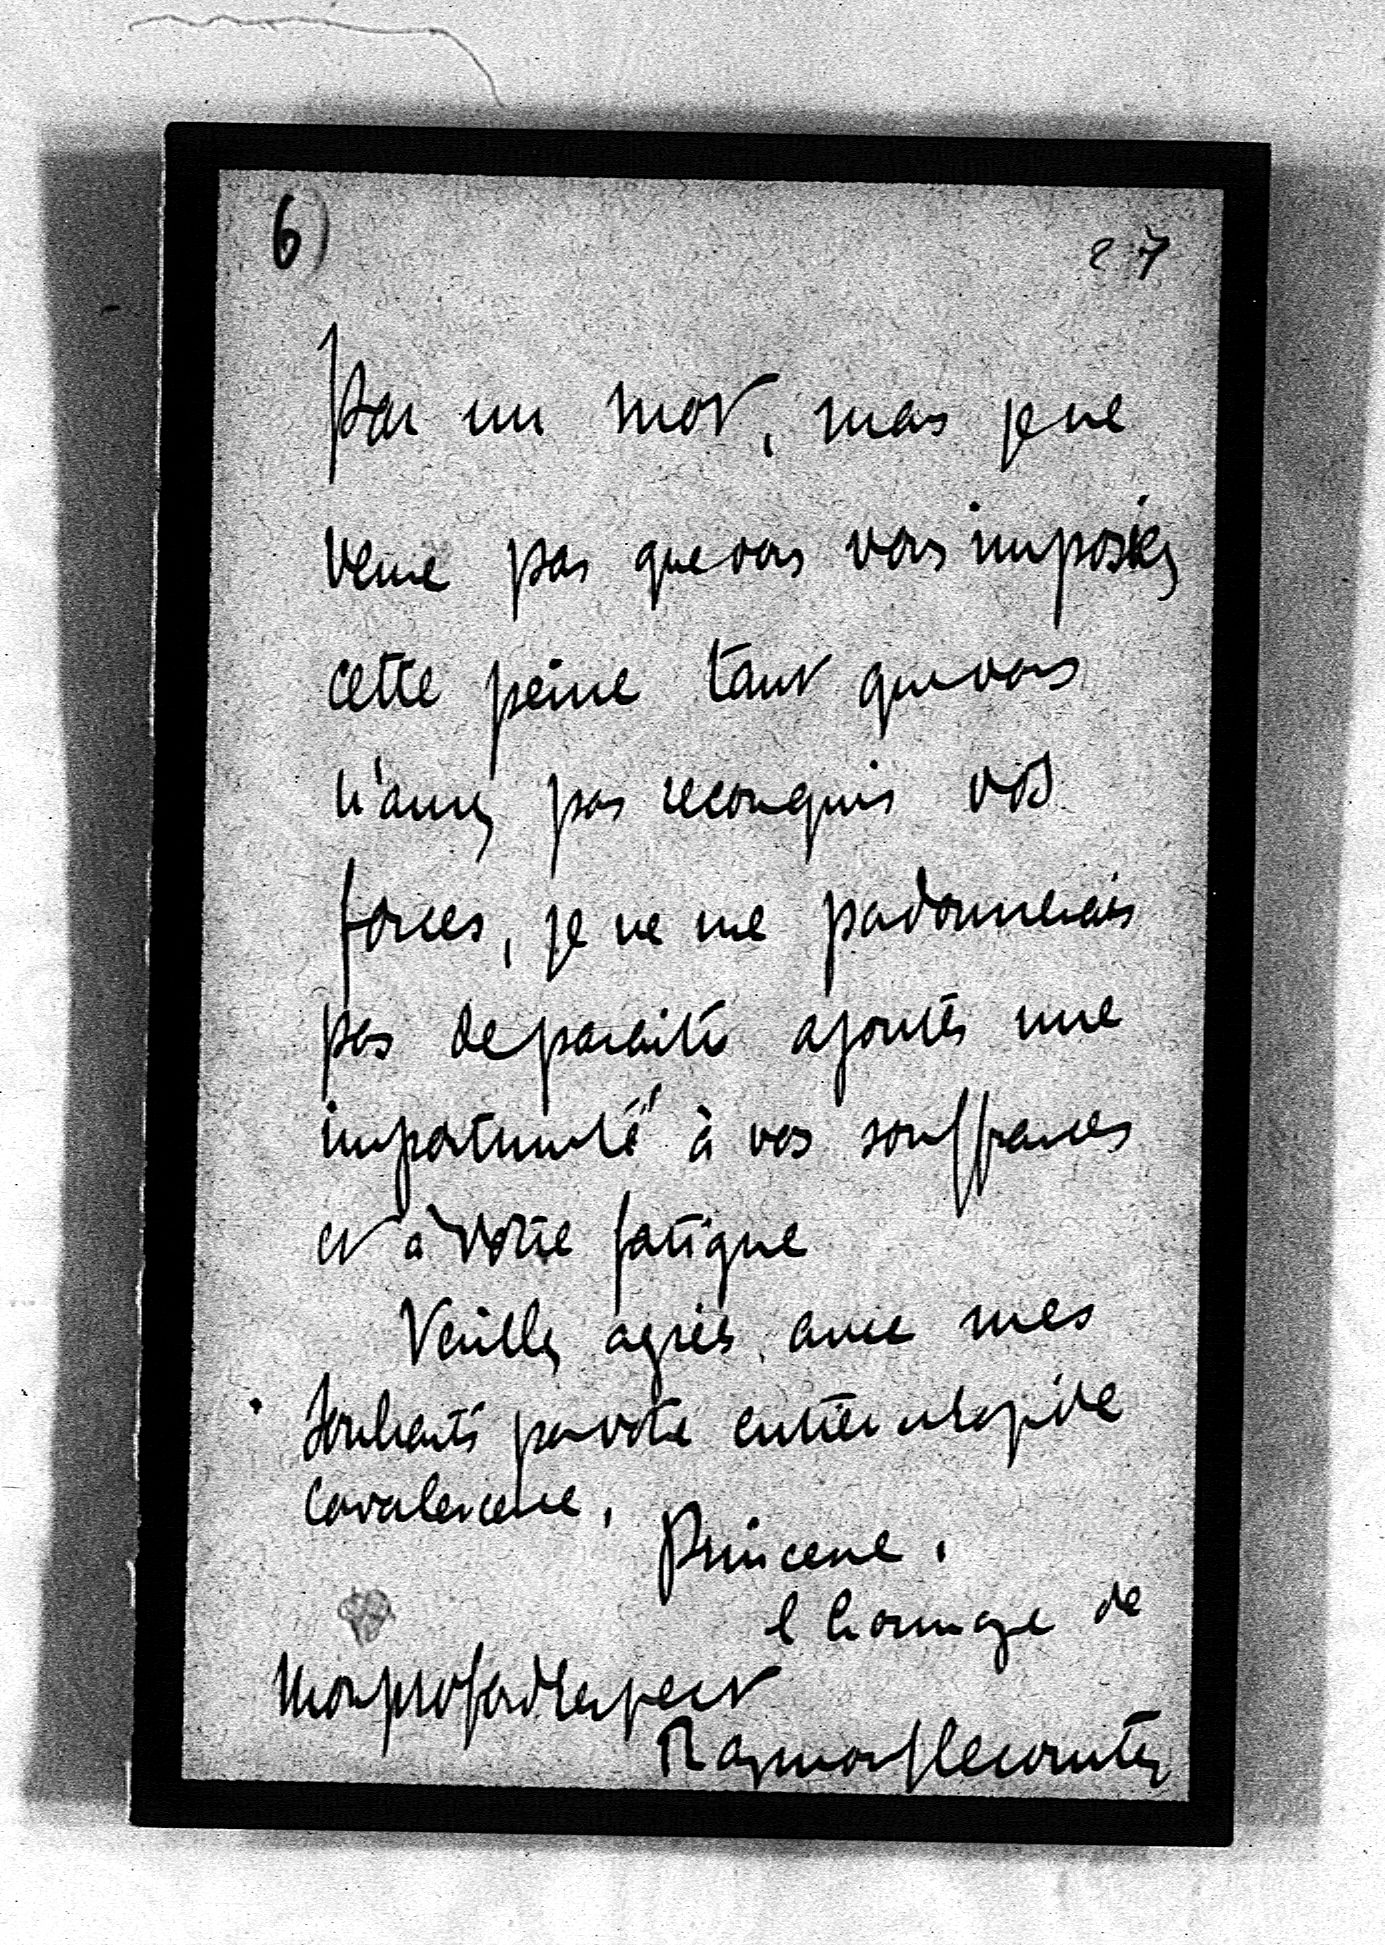 6) 27
par un mot, mais je ne
veux pas que vous vous imposiez
cette peine tant que vous
n'aurez pas reconquis vos
forces, je ne me pardonnerais
pas de paraître ajouter une
importunité à vos souffrances
et à votre fatigue
Veuillez agréer avec mes
souhaits pour votre entière et rapide
convalescence,
Princesse,
l'hommage de
mon profond respect
Raymond Lecomte